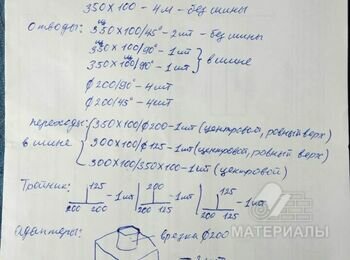 350×100 - 4м - без шины
Отводы: 350×100/45° - 2шт - без шины
350×100/90° - 1шт
350×100/90° - 1шт } в шине
ø200/90° - 4шт
ø200/45° - 4шт
Переходы: 350×100/ø200 - 1шт (центровой, ровный верх)
в шине 300×100/ø125 - 1шт (центровой, ровный верх)
300×100/350×100 - 1шт (центровой)
Тройник: 125 - 1шт 200 - 1шт 125 - 1шт
200 200 200 125 200 125
Адаптеры: врезка ø200
МАТЕРИАЛЫ